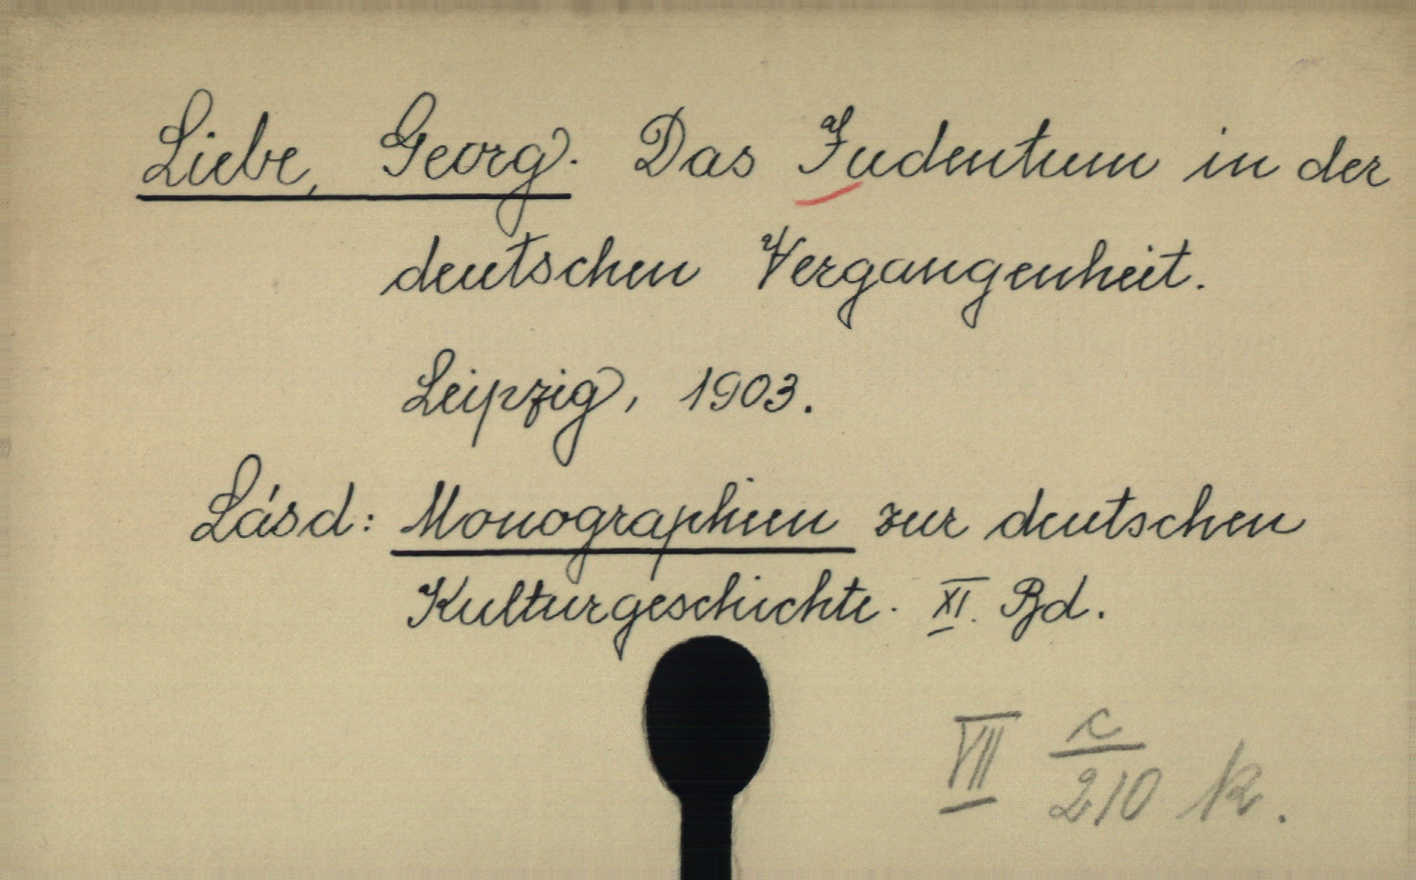 Liebe, Georg. Das Judentum in der
deutschen Vergangenheit.
Leipzig, 1903.
Lásd: Monographien zur deutschen
Kulturgeschichte. XI. Bd.
VII c/210 k.